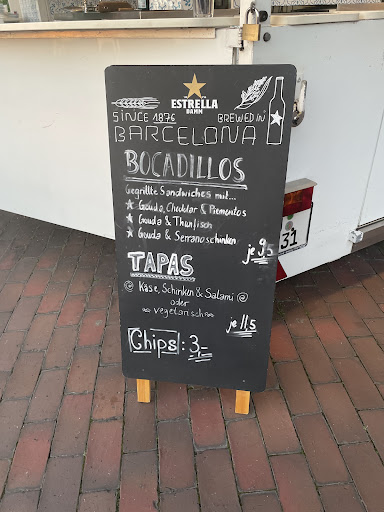 ESTRELLA
DAMM
SINCE 1876 BREWED IN
BARCELONA
BOCADILLOS
Gegrillte Sandwiches mit...
★ Gouda, Cheddar & Piementos
★ Gouda & Thunfisch
★ Gouda & Serranoschinken
je 9,5
TAPAS
Käse, Schinken & Salami
oder
vegetarisch
je 11,5
Chips: 3,-
31